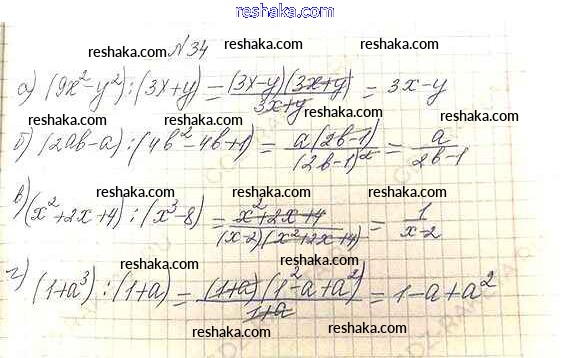 reshaka.com
reshaka.com №34 reshaka.com reshaka.com
а) (9x²-y²):(3x+y)=(3x-y)(3x+y)/3x+y=3x-y
reshaka.com reshaka.com reshaka.com
б) (2ab-a):(4b²-4b+1)=a(2b-1)/(2b-1)²=a/2b-1
reshaka.com reshaka.com reshaka.com
в) (x²+2x+4):(x³-8)=x²+2x+4/(x-2)(x²+2x+4)=1/x-2
reshaka.com reshaka.com reshaka.com
г) (1+a³):(1+a)=(1+a)(1²-a+a²)/1+a=1-a+a²
reshaka.com reshaka.com reshaka.com
reshaka.com